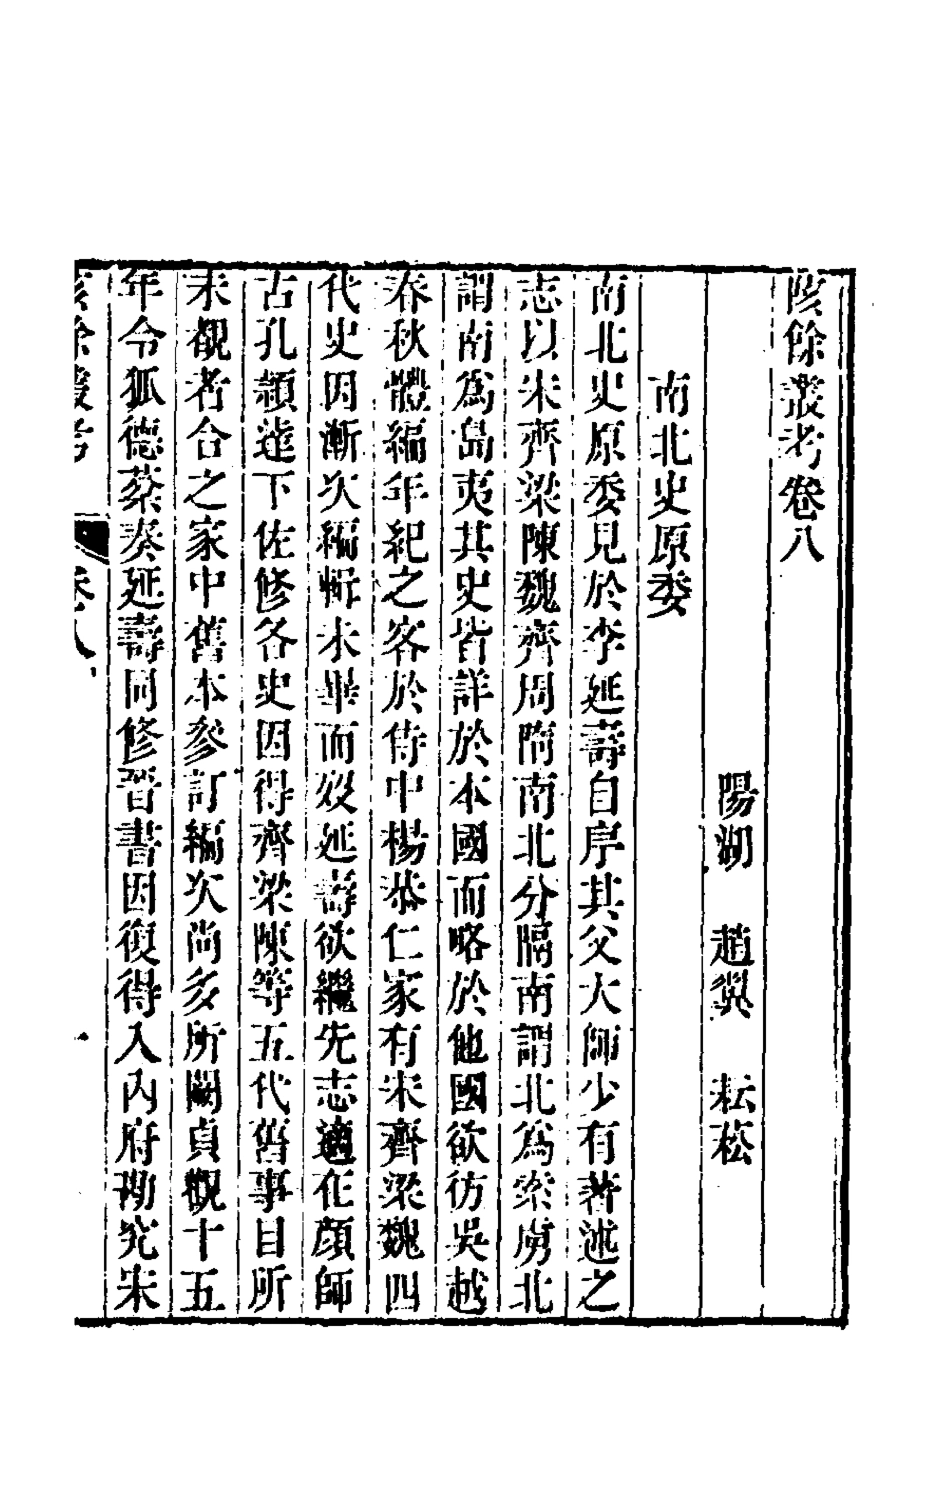 陔餘叢考卷八
陽湖 趙翼 耘菘
南北史原委
南北史原委見於李延壽自序其父大師少有著述之
志以宋齊梁陳魏齊周隋南北分隔南謂北爲索虜北
謂南爲島夷其史皆詳於本國而略於他國欲彷吳越
春秋體編年紀之客於侍中楊恭仁家有宋齊梁魏四
代史因漸次編輯未畢而歿延壽欲繼先志適在顏師
古孔穎達下佐修各史因得齊梁陳等五代舊事目所
未覩者合之家中舊本參訂編次尚多所闕貞觀十五
年令狐德棻奏延壽同修晉書因復得入內府勘究宋
陔餘叢考 卷八 一